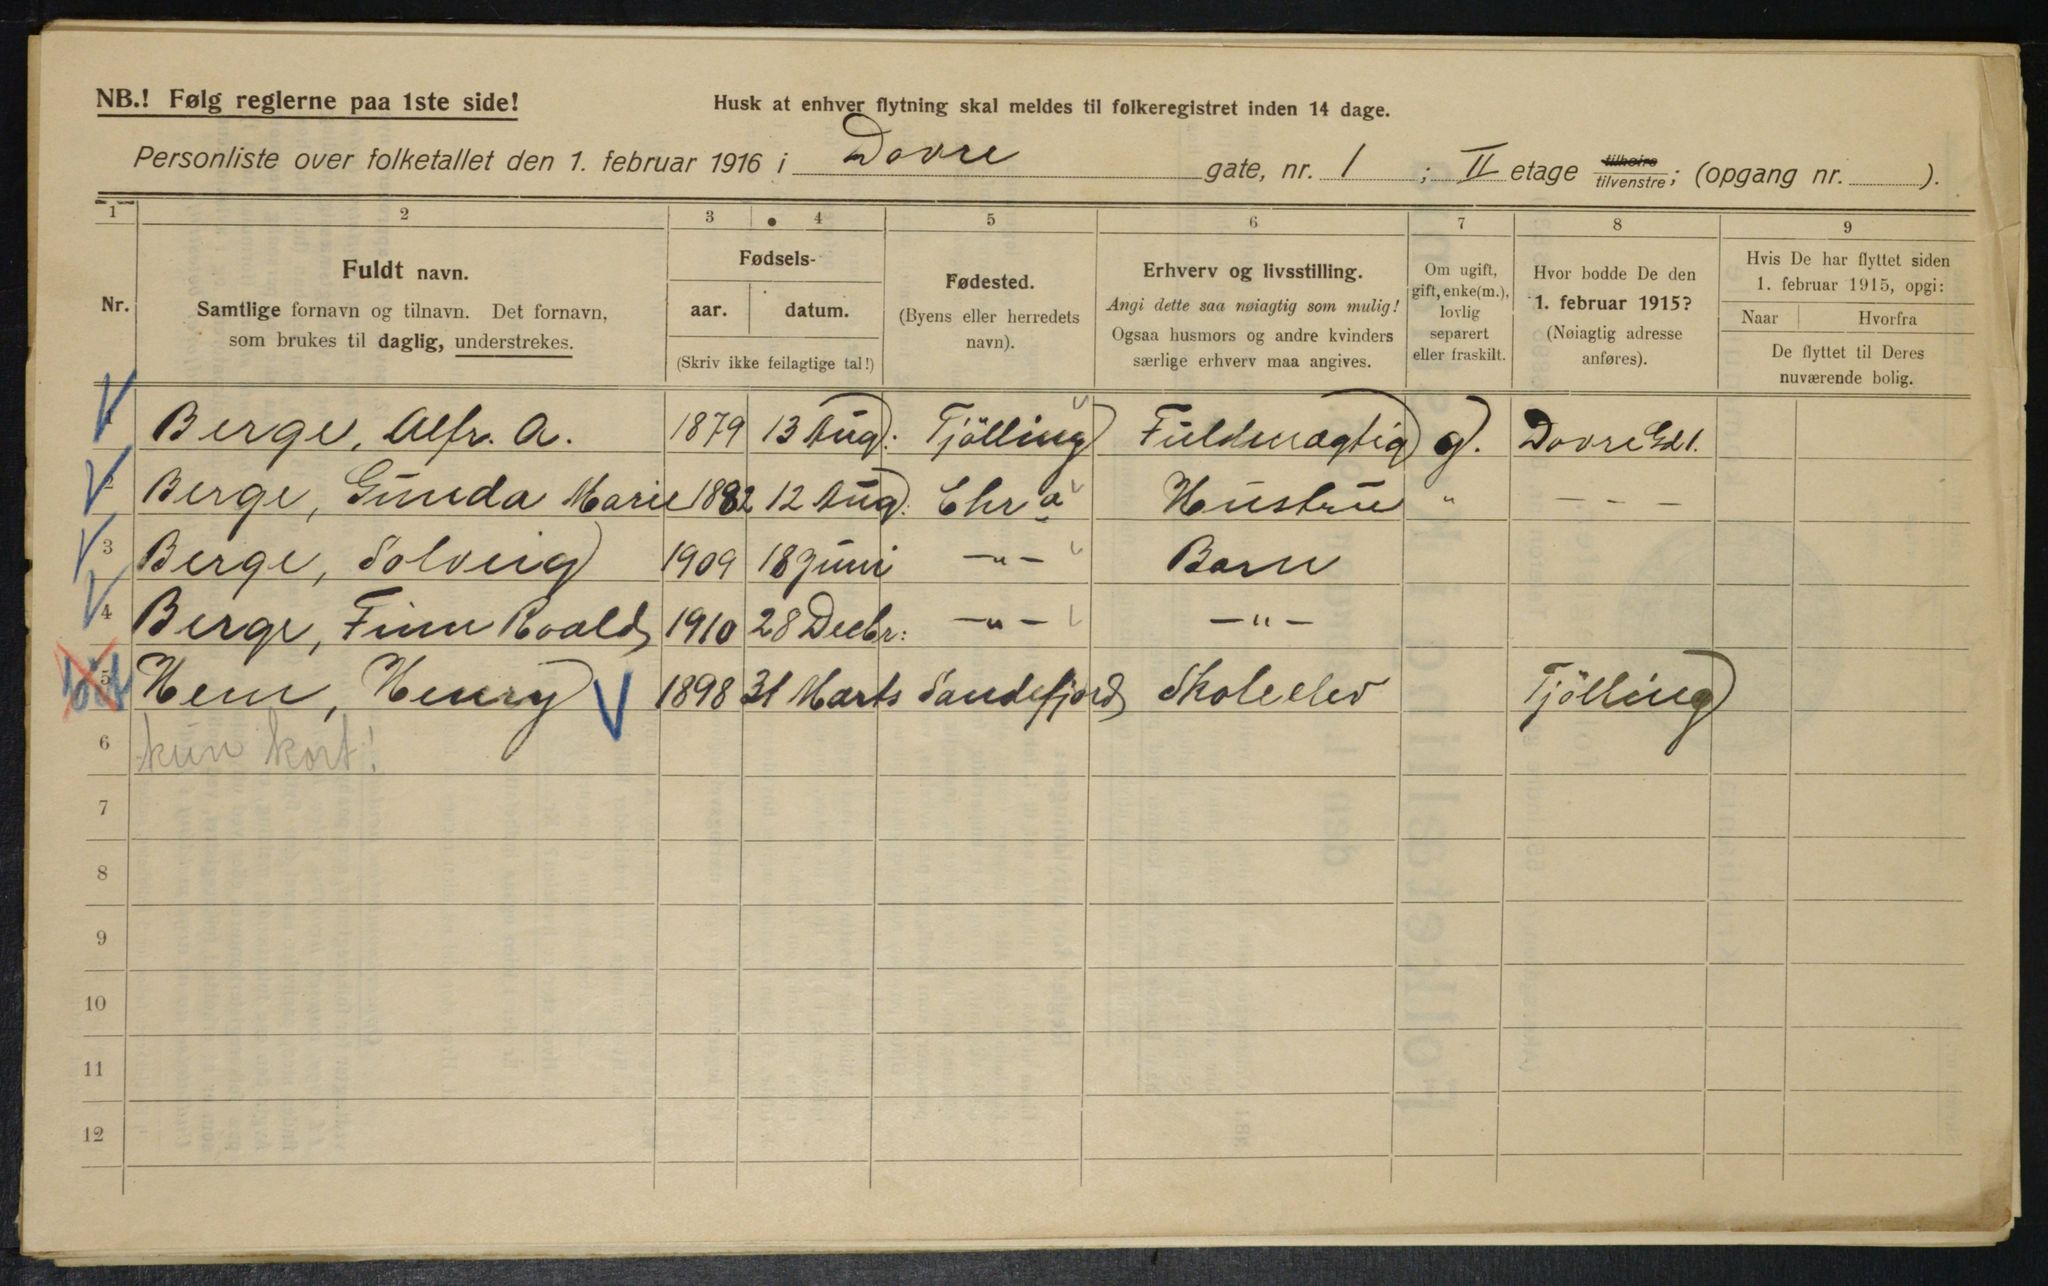 NB.! Følg reglerne paa 1ste side!
Husk at enhver flytning skal meldes til folkeregistret inden 14 dage.
Personliste over folketallet den 1. februar 1916 i Dovre gate, nr. 1 ; II etage tilhøire tilvenstre; (opgang nr. ).
1 2 3 4 5 6 7 8 9
Nr.
Fuldt navn.
Samtlige fornavn og tilnavn. Det fornavn,
som brukes til daglig, understrekes.
Fødsels-
aar. datum.
(Skriv ikke feilagtige tal!)
Fødested.
(Byens eller herredets
navn).
Erhverv og livsstilling.
Angi dette saa nøiagtig som mulig!
Ogsaa husmors og andre kvinders
særlige erhverv maa angives.
Om ugift,
gift, enke(m.),
lovlig
separert
eller fraskilt.
Hvor bodde De den
1. februar 1915?
(Nøiagtig adresse
anføres).
Hvis De har flyttet siden
1. februar 1915, opgi:
Naar Hvorfra
De flyttet til Deres
nuværende bolig.
Berge, Alfr. A. 1879 13 Aug: Tjölling Fuldmægtig g. Dovre Gd 1.
2 Berge, Gunda Marie 1882 12 Aug: Chr a Hustru " — — —
3 Berge, Solveig 1909 18 Juni —"— Barn
4 Berge, Finn Roald 1910 28 Decbr: —"— —"—
5 Hem, Henry 1898 31 Marts Sandefjord Skoleelev Tjölling
6 kun kort!
7
8
9
10
11
12